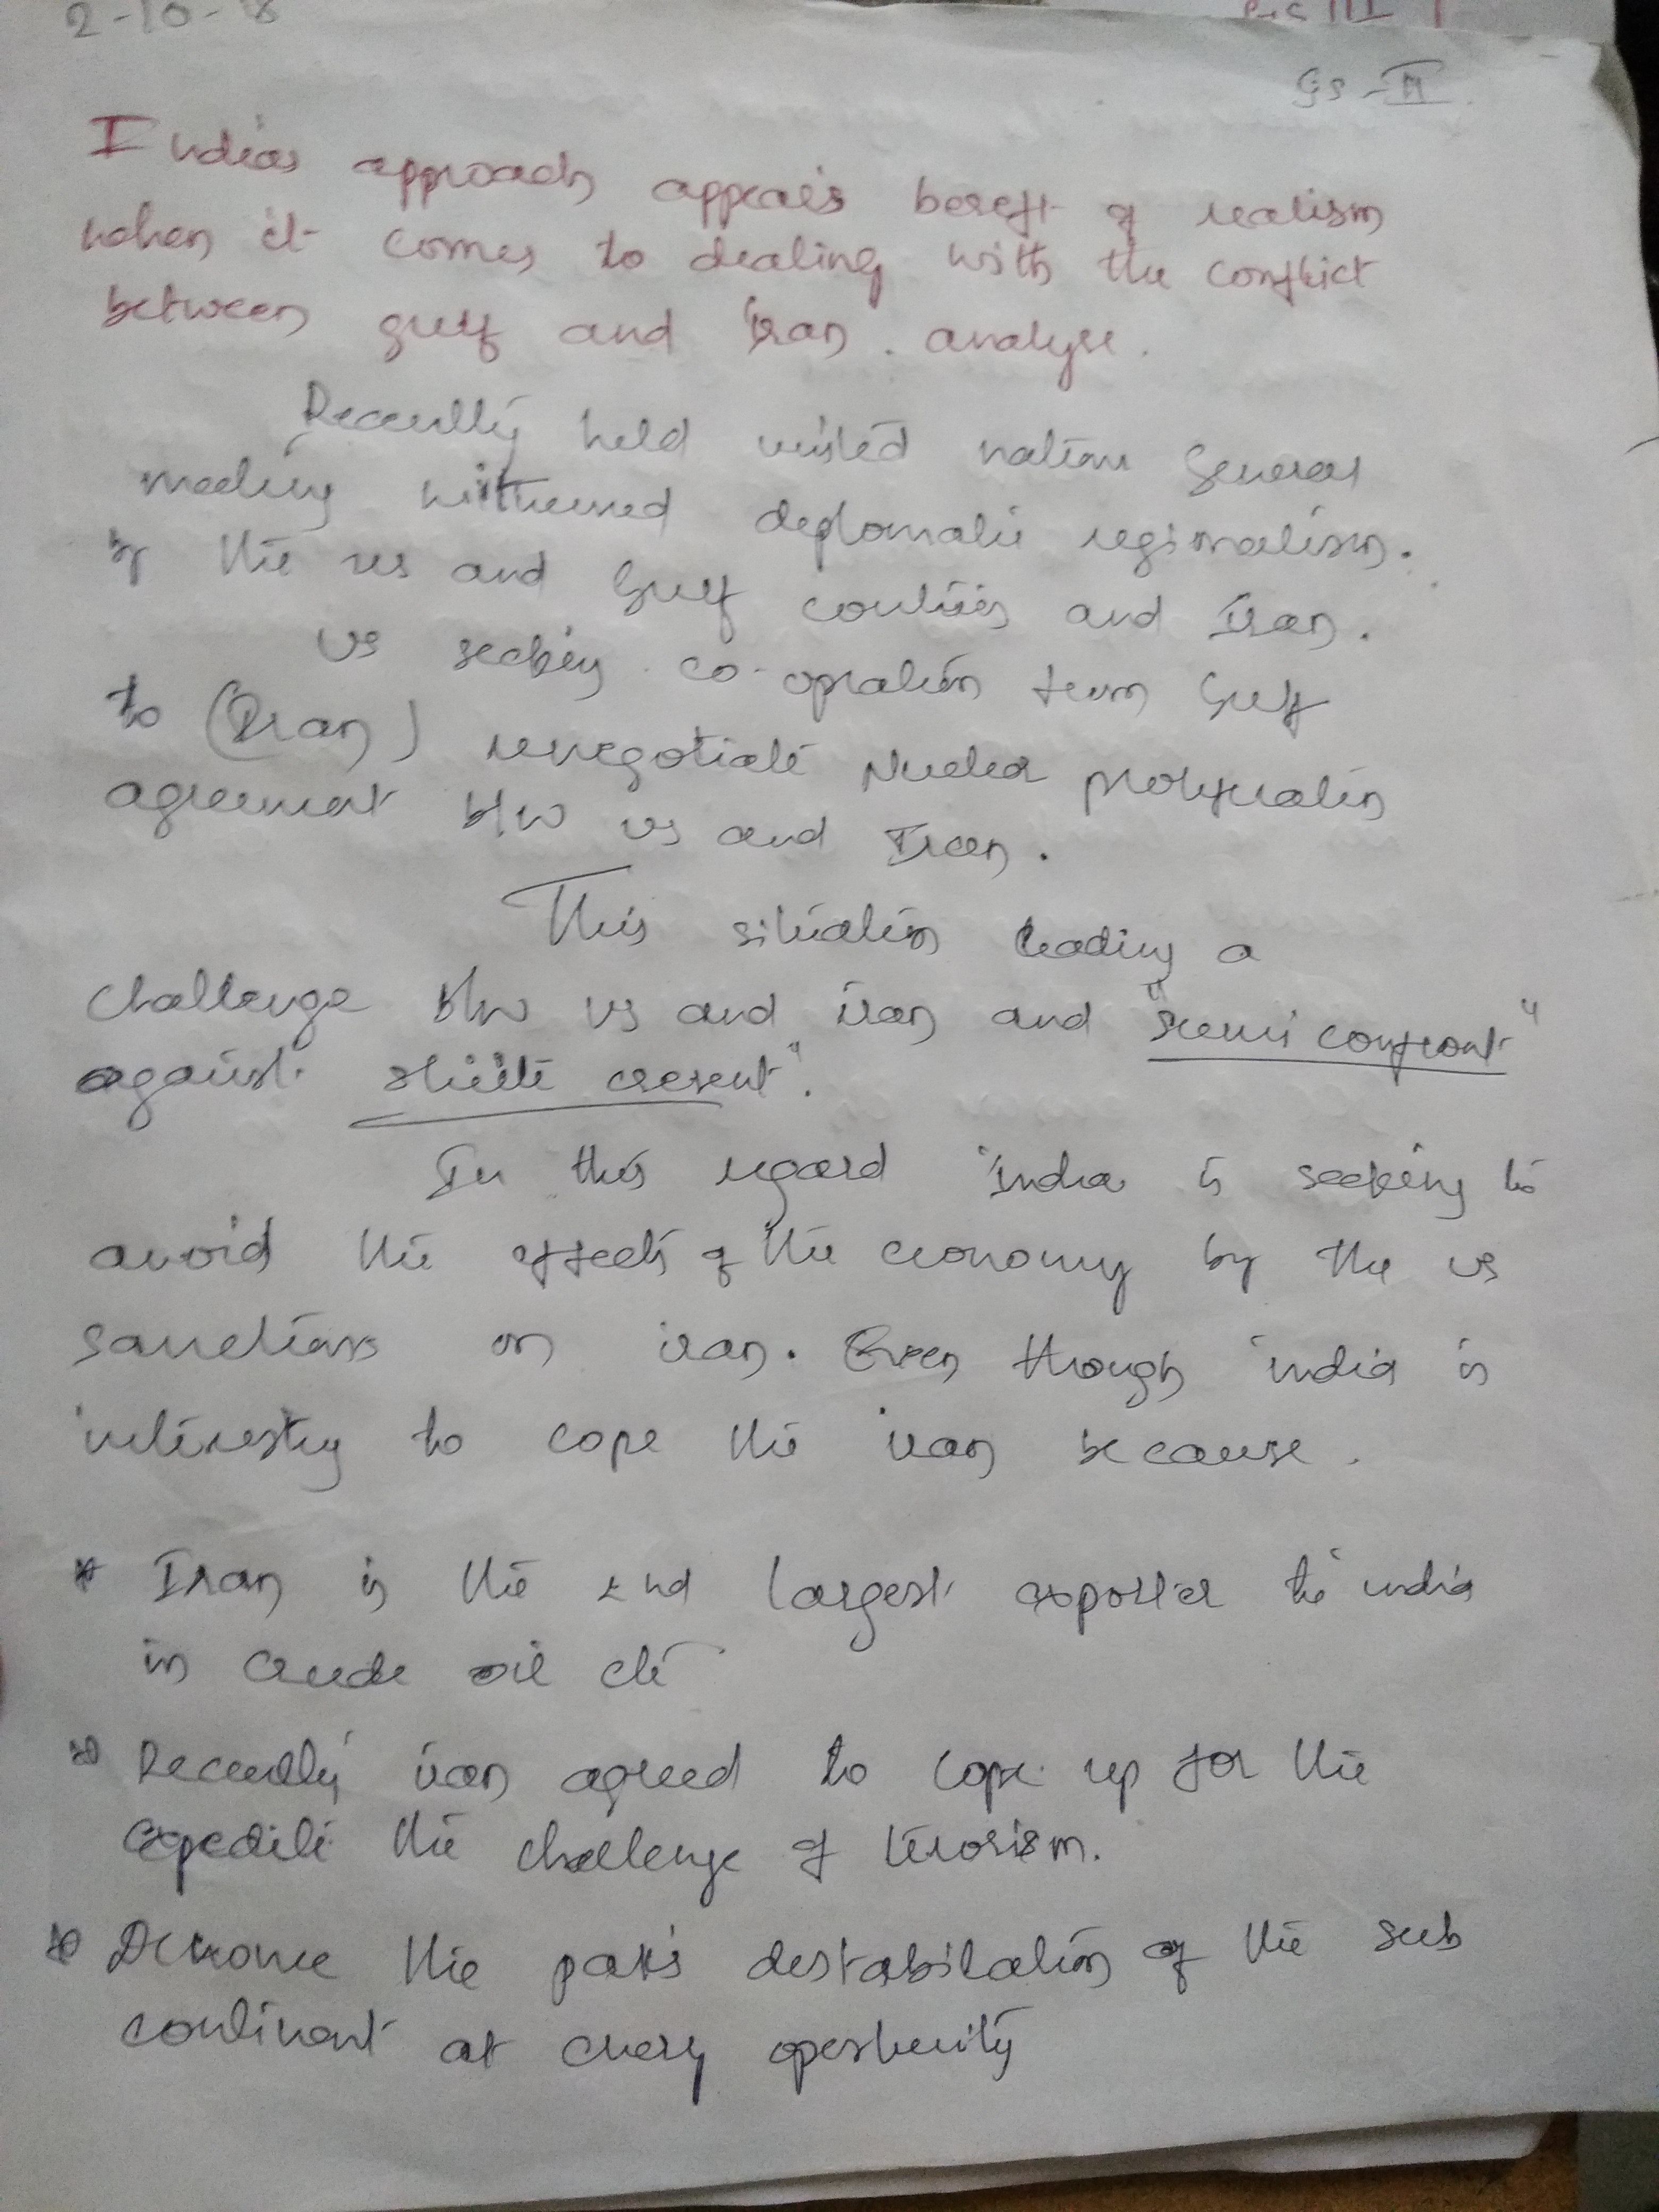 2-10-18
GS-II
Indias approach appears bereft of realism
when it comes to dealing with the conflict
between gulf and Iran. analyse.
Recently held united nations General
meeting witnessed deplomatic regionalism.
by the us and Gulf coutries and Iran.
US seeking co-opration from Gulf
to (Iran) renegotiate Nuclear proliferation
agreement b/w us and Iran.
This situation leading a
challenge b/w us and iran and "sunni confront"
against shiite cresent".
In this regard india is seeking to
avoid the effects of the economy by the us
sanctions on iran. Even though india is
interesting to cope the iran because.
* Iran is the 2nd largest exporter to india
in crude oil etc
* Recently iran agreed to cope up for the
expedite the challenge of terorism.
* the pak's destabilation of the sub
continent at every oportunity